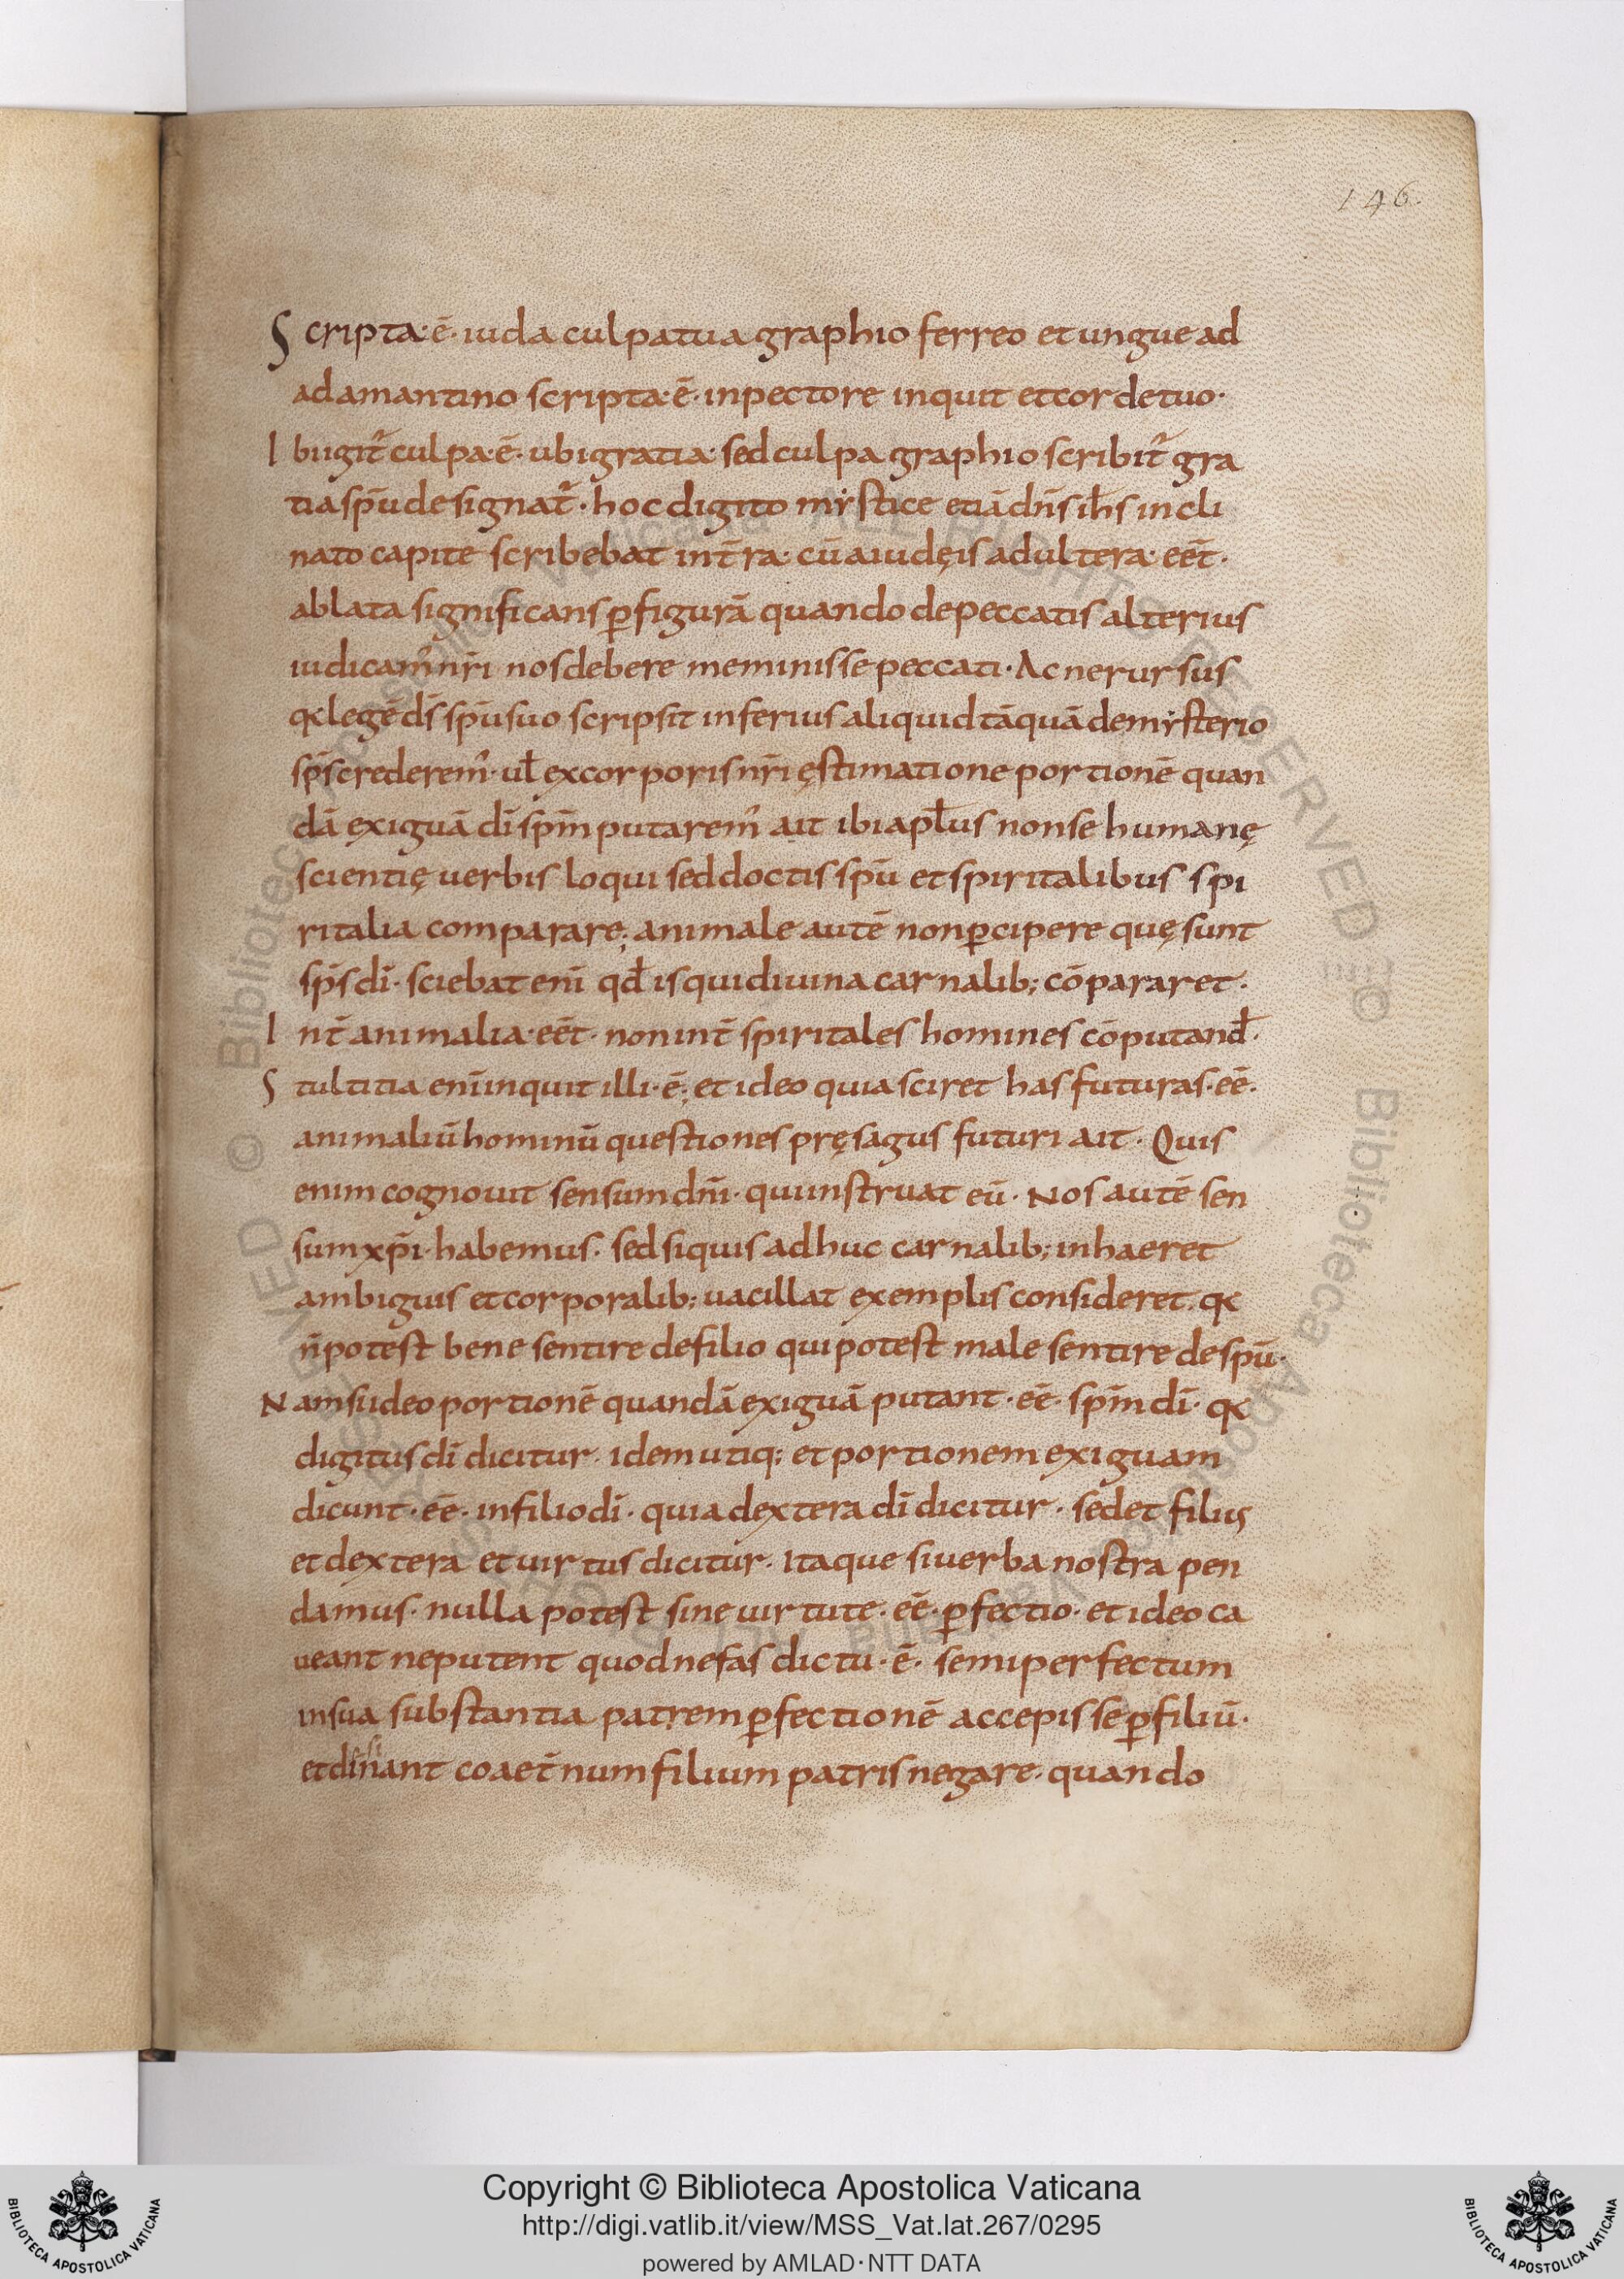 146.
Scripta·ē· iuda culpa tua graphio ferreo et ungue ad
adamantino scripta·ē· inpectore inquit et cor de tuo·
Ibi igit᷑ culpa·ē· ubi gratia· sed culpa graphio scribit᷑ gra
tia sp̄u designat᷑· hoc digito mẏstice etiā dn̄s ih̄s incli
nato capite scribebat in t̄ra· cū a iudęis adultera· eēt·
ablata significans ꝑ figurā quando de peccatis alterius
iudicam᷒ nr̄i nos debere meminisse peccati· Ac ne rursus
qꝛ legē dī sp̄u suo scripsit inferius aliquid tāquā de mẏsterio
sp̄s crederem᷒· ul̄ ex corporis nr̄i ęstimatione portionē quan
dā exiguā dī sp̄m putarem᷒ ait ibi apl̄us non se humanę
scientię uerbis loqui sed doctis sp̄u et spiritalibus spi
ritalia comparare; animale autē non ꝑcipere quę sunt
sp̄s dī· sciebat enī qd̄ is qui diuina carnalib; cōpararet·
Int̄ animalia· eēt· non int̄ spiritales homines cōputand̄·
Stultitia enī inquit illi·ē·; et ideo quia sciret has futuras·eē·
animaliū hominū questiones pręsagus futuri ait· Quis
enim cognouit sensum dn̄i· qui instruat eū· Nos autē sen
sum xp̄i· habemus· sed si quis adhuc carnalib; inhaeret
ambiguis et corporalib; uacillat exemplis consideret· qꝛ
n̄ potest bene sentire de filio qui potest male sentire de sp̄u·
Nam si ideo portionē quandā exiguā putant·eē· sp̄m dī· qꝛ
digitus dī dicitur· idem utiq; et portionem exiguam
dicunt·eē· in filio dī· quia dextera dī dicitur· sed et filius
et dextera et uirtus dicitur· Itaque si uerba nostra pen
damus· nulla potest sine uirtute·eē· ꝑfectio· et ideo ca
ueant ne putent quod nefas dictu·ē· semiperfectum
in sua substantia patrem ꝑfectionē accepisse ꝑ filiū·
et coaet̄num filium patris negare· quando
Copyright © Biblioteca Apostolica Vaticana
http://digi.vatlib.it/view/MSS_Vat.lat.267/0295
powered by AMLAD · NTT DATA
BIBLIOTECA APOSTOLICA VATICANA
BIBLIOTECA APOSTOLICA VATICANA